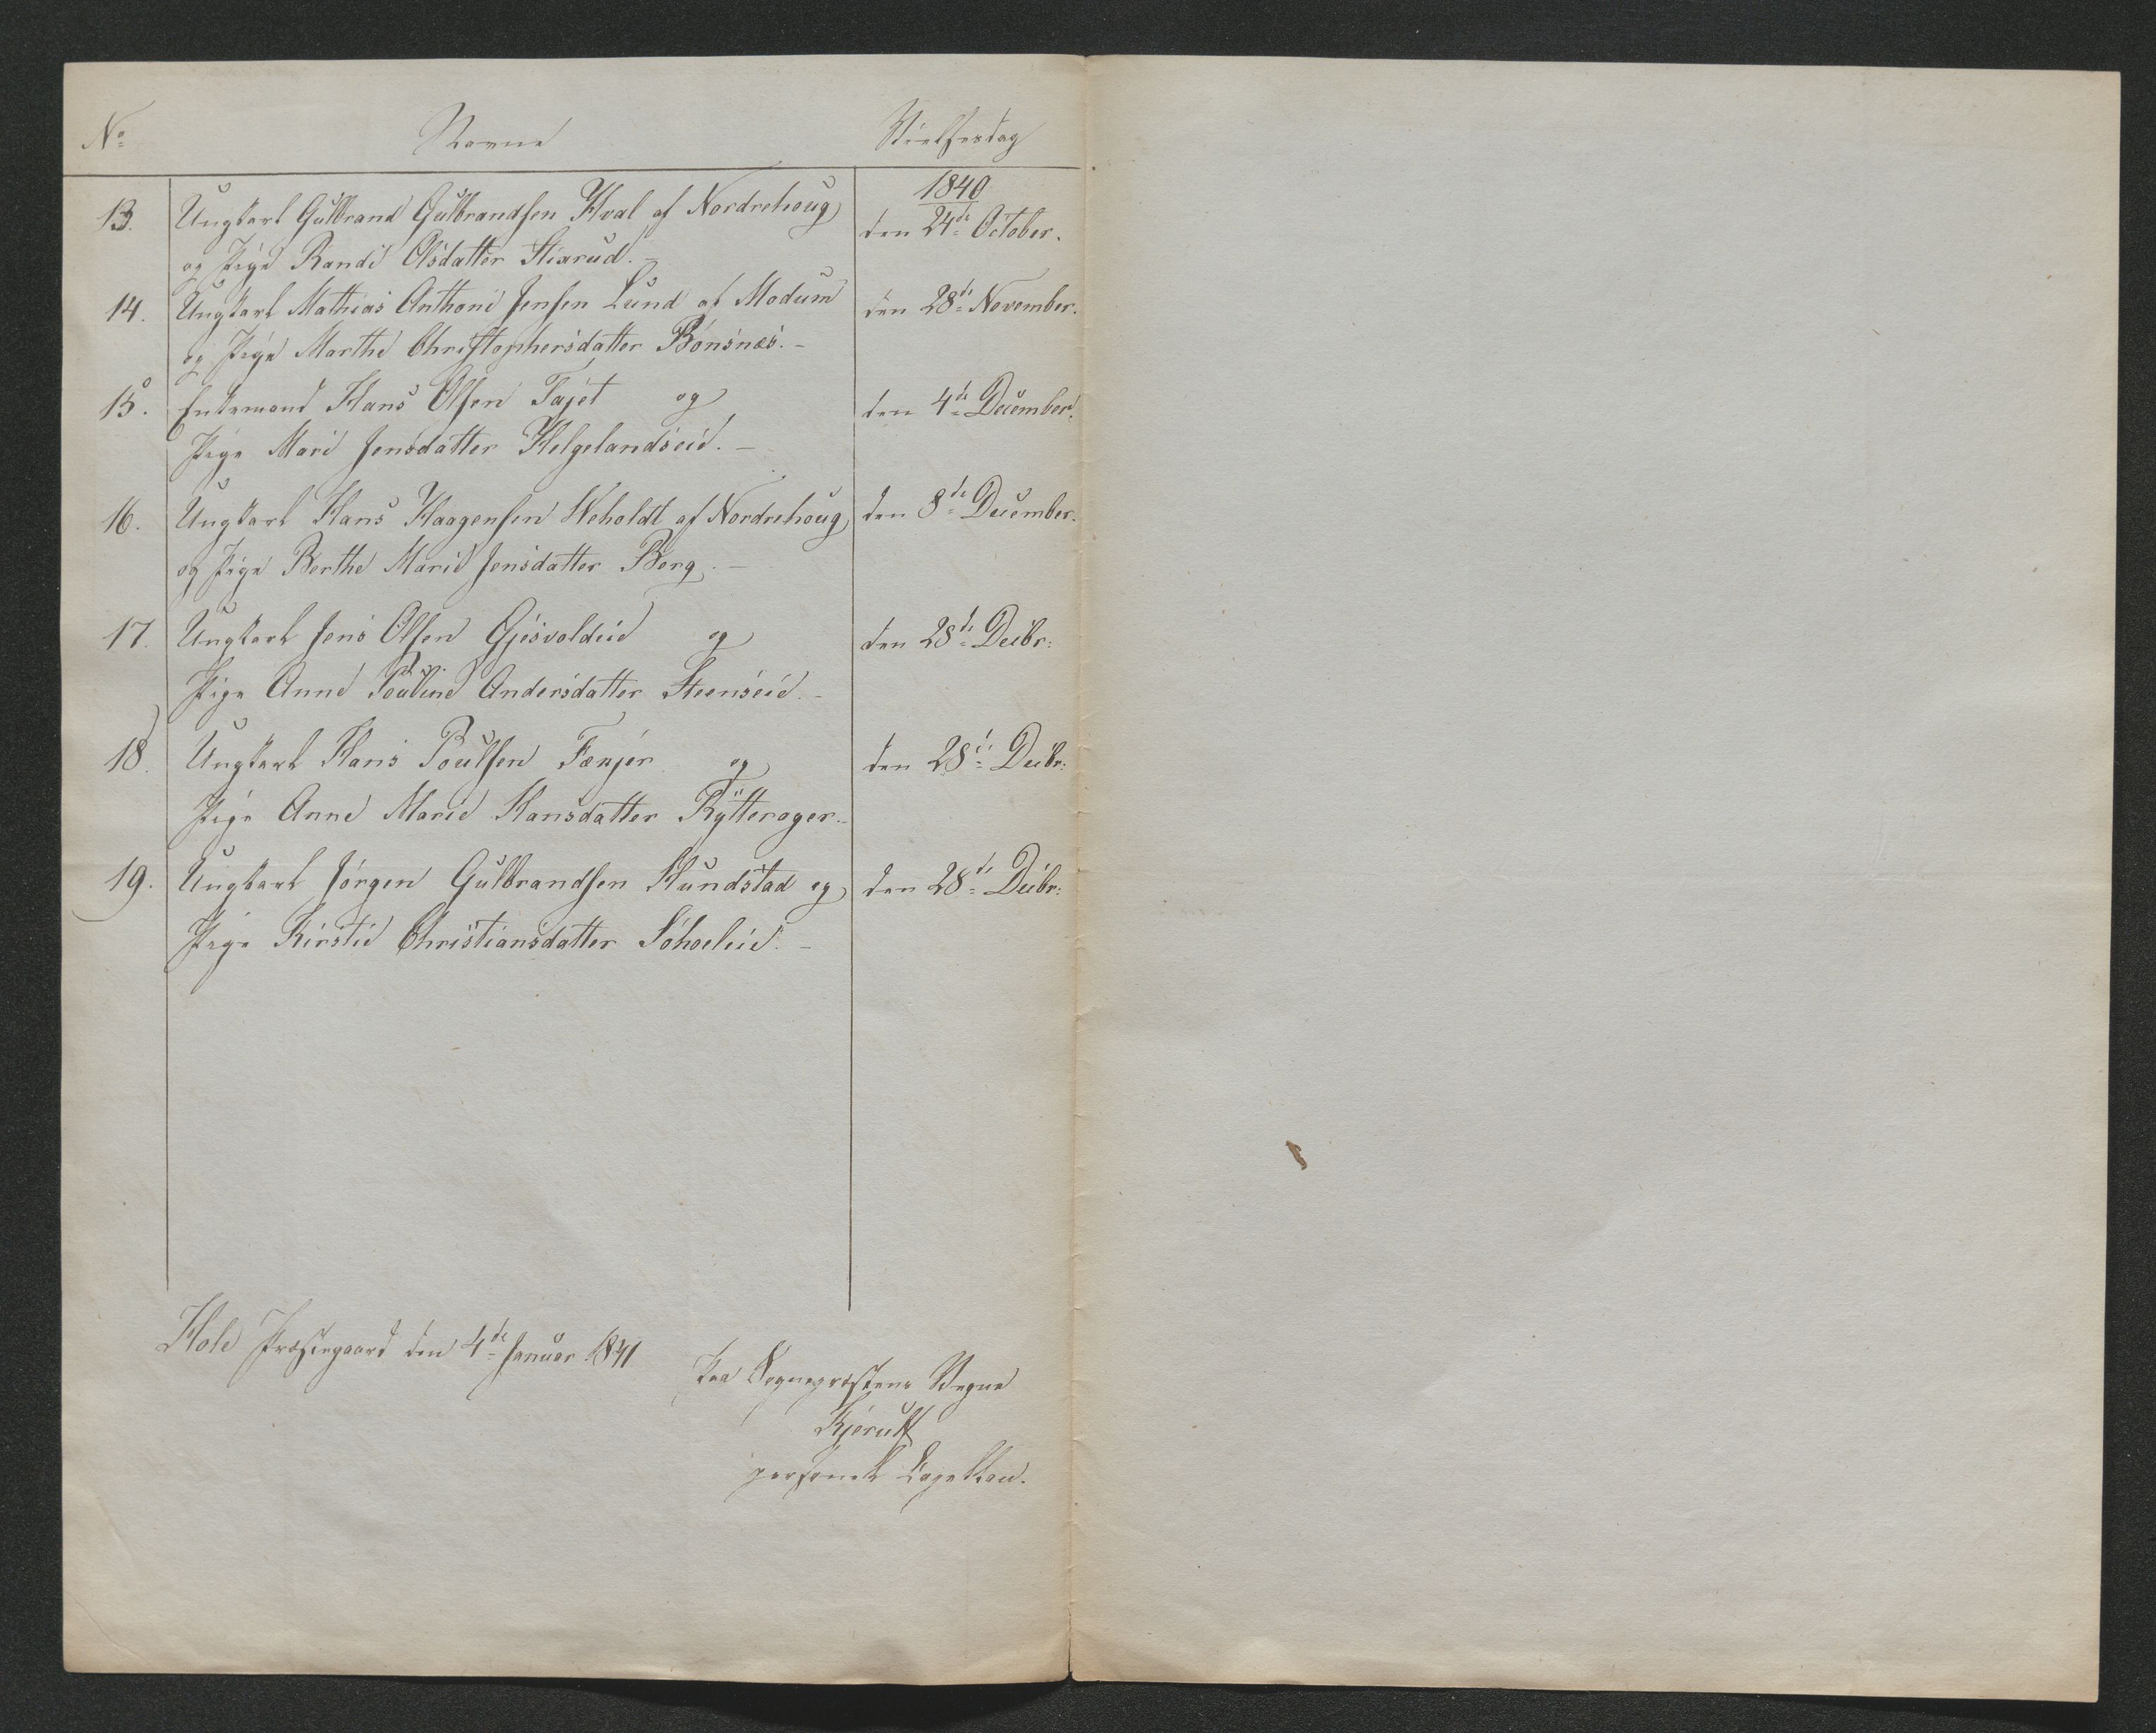 No Navne Vielsesdag
1840
13. Ungkarl Gulbrand Gulbrandsen Hval af Nordrehoug den 24de October.
og Pige Randi Olsdatter Stixrud.
14. Ungkarl Mathias Anthoni Jensen Lund af Modum den 28de November.
og Pige Marthe Christophersdatter Bönsnæs. –
15. Enkemand Hans Olsen Fajet og den 4de December.
Pige Mari Jensdatter Helgelandseie. –
16. Ungkarl Hans Haagensen Weholdt af Nordrehoug den 8de December.
og Pige Berthe Marie Jensdatter Berg. –
17. Ungkarl Jens Olsen Gjesvoldeie og den 28de Decbr:
Pige Anne Pauline Andersdatter Steenseie. –
18. Ungkarl Hans Poulsen Fænjer og den 28de Decbr:
Pige Anne Marie Hansdatter Rÿtterager. –
19. Ungkarl Jörgen Gulbrandsen Hundstad og den 28de Decbr:
Pige Kirstie Christiansdatter Söhoeleie. –
Hole Præstegaard den 4de Januar 1841
Paa Sognepræstens Vegne
Kjerulf
personel Capellan.